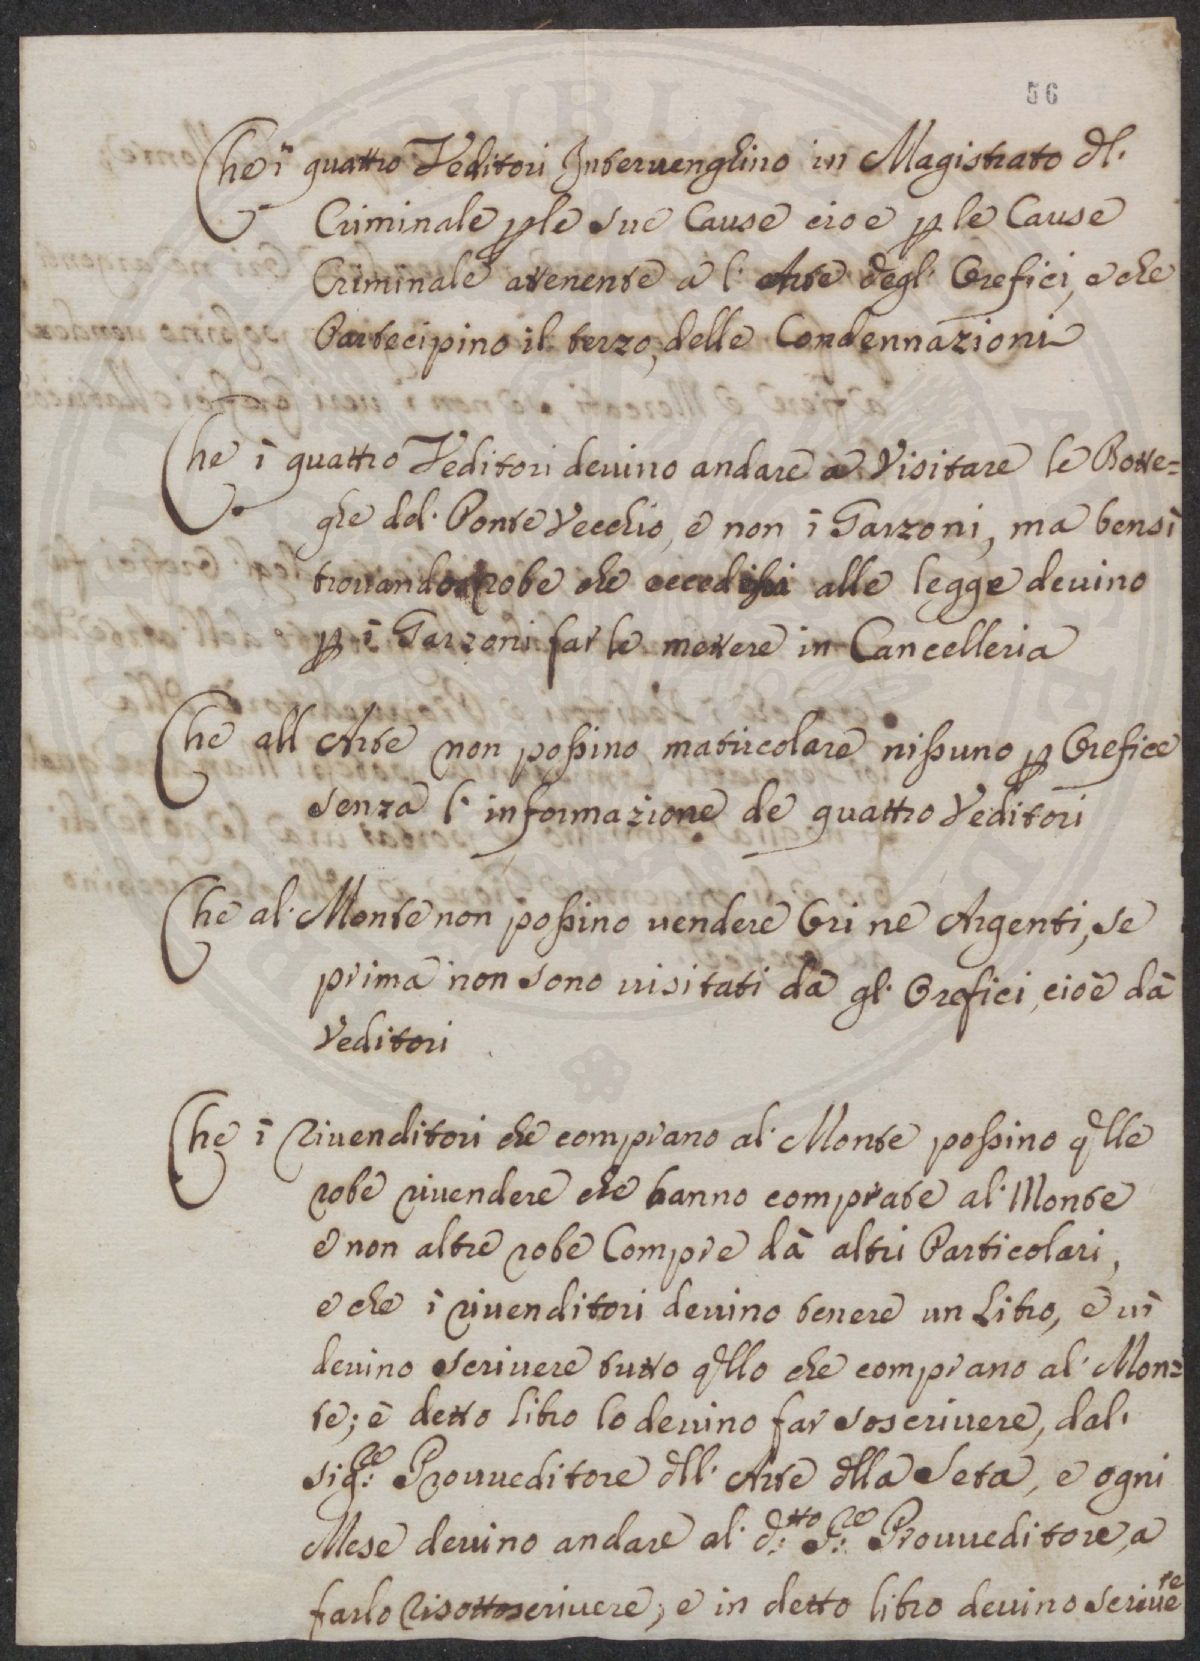 56
Che i quattro Veditori Intervenghino in Magistrato dl.
Criminale p le sue Cause cioe p le Cause
Criminale attenente a l' Arte degl' Orefici, e che
Partecipino il terzo, delle Condennazioni
Che i quattro Veditori devino andare a Visitare le Botte=
ghe del Ponte Vecchio, e non i Garzoni, ma bensi
trovando robe che eccedissi alle legge devino
p i Garzoni farle mettere in Cancelleria
Che all Arte non possino matircolare nissuno p Orefice
senza l' informazione de quattro Veditori
Che al Monte non possino vendere Ori ne Argenti, se
prima non sono uisitati dà gl' Orefici, cioè dà
Veditori
Che i riuenditori che comprano al Monte possino qlle
robe riuendere che hanno comprate al Monte
e non altre robe Compre dà altri Particolari,
e che i riuenditori deuino tenere un Libro, e ui
deuino scriuere tutto qllo che comprano al Mon=
te; e detto libro lo deuino far soscriuere, dal
Sig.re Prouueditore dll' Arte dlla Seta, e ogni
Mese deuino andare al d.tto S.re Prouueditore, a
farlo risottoscriuere; e in detto libro deuino scriuere